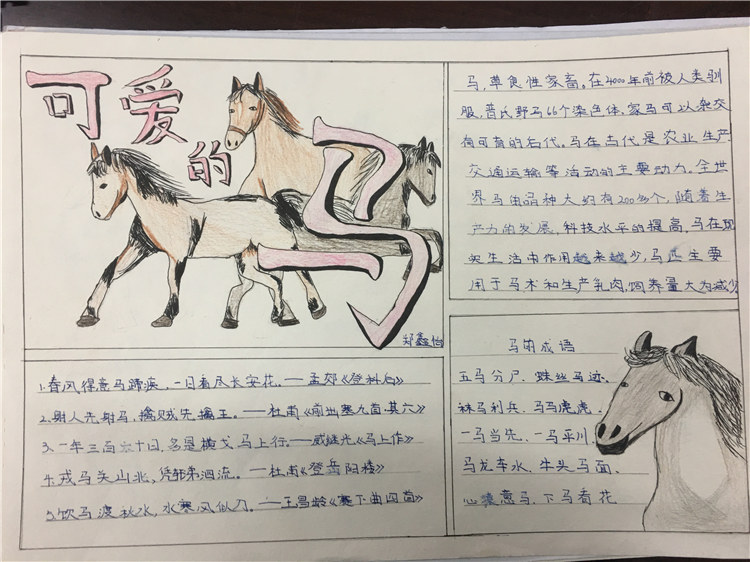 可爱的马
郑鑫怡
马,草食性家畜。在4000年前被人类驯
服,普氏野马66个染色体,家马可以杂交
有可育的后代。马在古代是农业生产、
交通运输等活动的主要动力。全世
界马的品种大约有200多个,随着生
产力的发展,科技水平的提高,马在现
实生活中作用越来越少,马匹主要
用于马术和生产乳肉,饲养量大为减少
1.春风得意马蹄疾,一日看尽长安花。——孟郊《登科后》
2.射人先射马,擒贼先擒王。——杜甫《前出塞九首·其六》
3.一年三百六十日,多是横戈马上行。——戚继光《马上作》
4.戎马关山北,凭轩涕泗流。——杜甫《登岳阳楼》
5.饮马渡秋水,水寒风似刀。——王昌龄《塞下曲四首》
马的成语
五马分尸、蛛丝马迹、
秣马利兵、马马虎虎、
一马当先、一马平川、
马龙车水、牛头马面、
心猿意马、下马看花